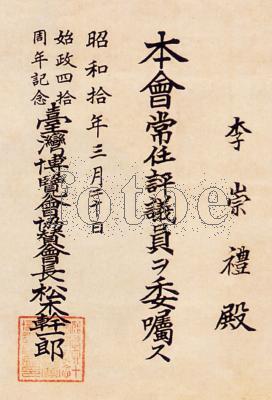 李崇禮殿
本會常任評議員ヲ委囑ス
昭和拾年三月日
始政四拾
周年記念
臺灣博覽會協贊會長松木幹一郎